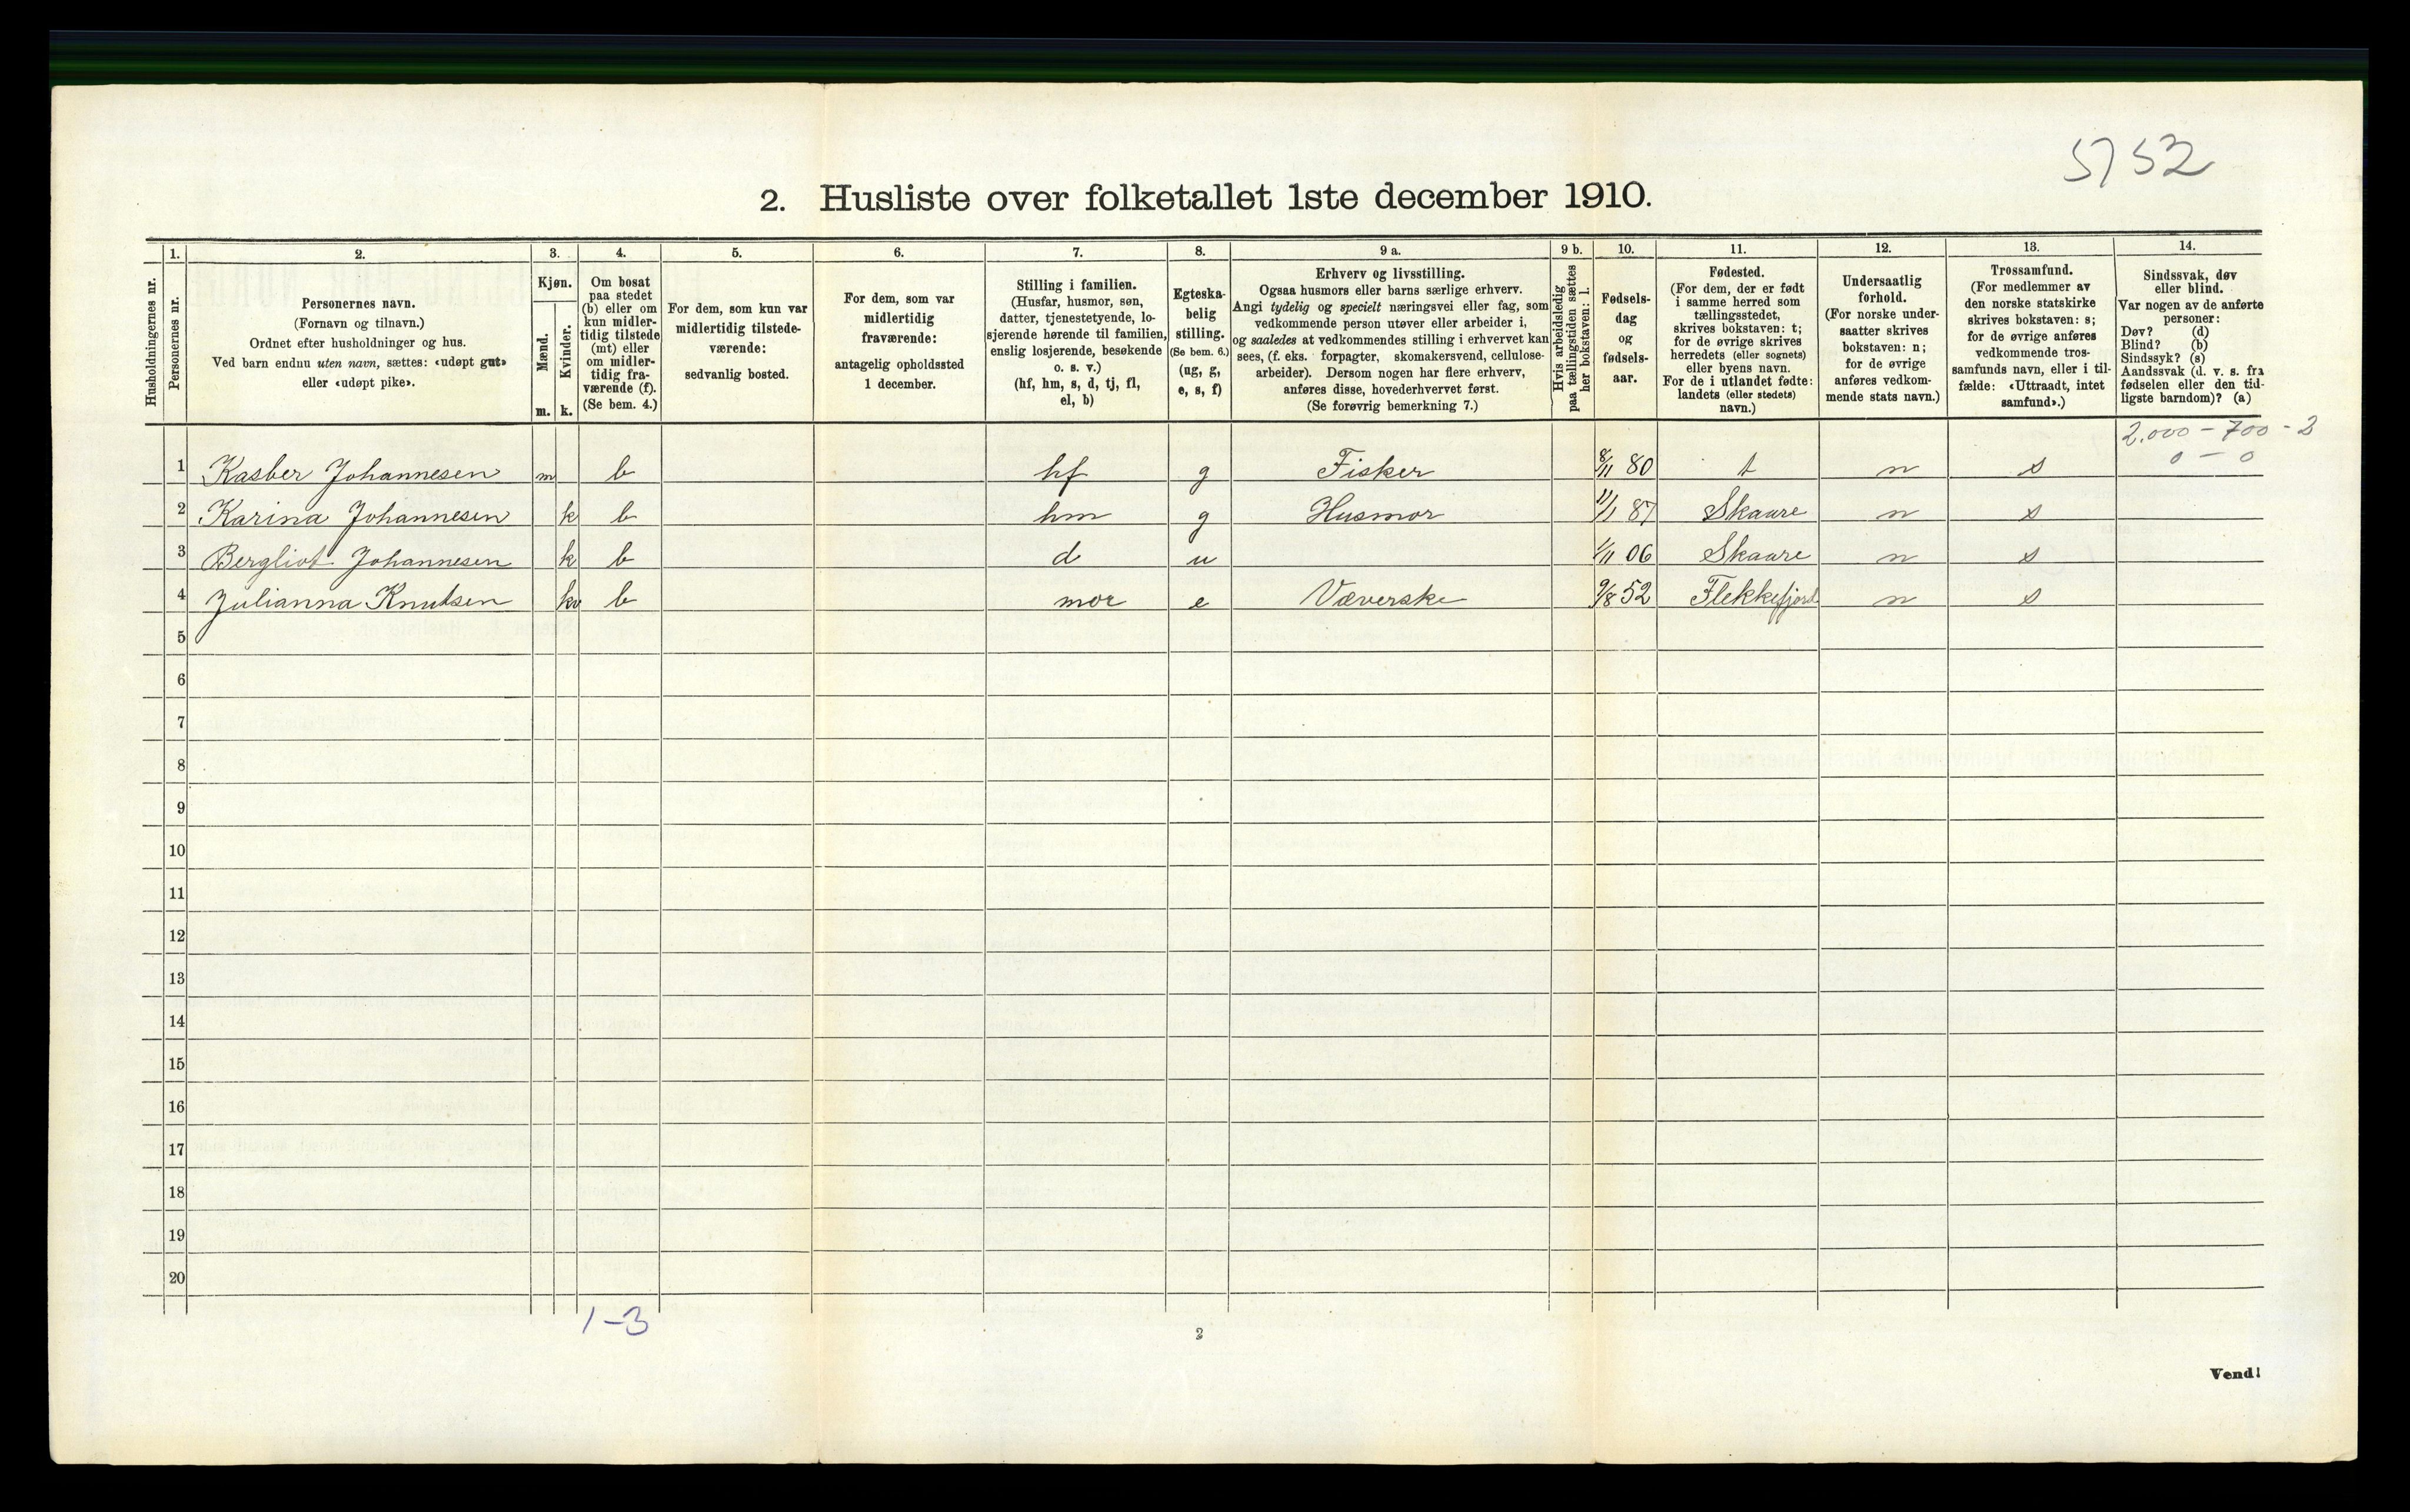 5752
2. Husliste over folketallet 1ste december 1910.
1. 2. 3. 4. 5. 6. 7. 8. 9 a. 9 b. 10. 11. 12. 13. 14.
Husholdningernes nr.
Personernes nr.
Personernes navn.
(Fornavn og tilnavn.)
Ordnet efter husholdninger og hus.
Ved barn endnu uten navn, sættes: «udøpt gut»
eller «udøpt pike».
Kjøn.
Mænd.
Kvinder.
m. k.
Om bosat
paa stedet
(b) eller om
kun midler-
tidig tilstede
(mt) eller
om midler-
tidig fra-
værende (f).
(Se bem. 4.)
For dem, som kun var
midlertidig tilstede-
værende:
sedvanlig bosted.
For dem, som var
midlertidig
fraværende:
antagelig opholdssted
1 december.
Stilling i familien.
(Husfar, husmor, søn,
datter, tjenestetyende, lo-
sjerende hørende til familien,
enslig losjerende, besøkende
o. s. v.)
(hf, hm, s, d, tj, fl,
el, b)
Egteska-
belig
stilling.
(Se bem. 6.)
(ug, g,
e, s, f)
Erhverv og livsstilling.
Ogsaa husmors eller barns særlige erhverv.
Angi tydelig og specielt næringsvei eller fag, som
vedkommende person utøver eller arbeider i,
og saaledes at vedkommendes stilling i erhvervet kan
sees, (f. eks. forpagter, skomakersvend, cellulose-
arbeider). Dersom nogen har flere erhverv,
anføres disse, hovederhvervet først.
(Se forøvrig bemerkning 7.)
Hvis arbeidsledig
paa tællingstiden sættes
her bokstaven: l.
Fødsels-
dag
og
fødsels-
aar.
Fødested.
(For dem, der er født
i samme herred som
tællingsstedet,
skrives bokstaven: t;
for de øvrige skrives
herredets (eller sognets)
eller byens navn.
For de i utlandet fødte:
landets (eller stedets)
navn.)
Undersaatlig
forhold.
(For norske under-
saatter skrives
bokstaven: n;
for de øvrige
anføres vedkom-
mende stats navn.)
Trossamfund.
(For medlemmer av
den norske statskirke
skrives bokstaven: s;
for de øvrige anføres
vedkommende tros-
samfunds navn, eller i til-
fælde: «Uttraadt, intet
samfund».)
Sindssvak, døv
eller blind.
Var nogen av de anførte
personer:
Døv? (d)
Blind? (b)
Sindssyk? (s)
Aandssvak (d. v. s. fra
fødselen eller den tid-
ligste barndom)? (a)
2.000 - 700 - 2
0 - 0
1 Kasber Johannesen m b hf g Fisker 8/11 80 t n s
2 Karina Johannesen k b hm g Husmor 11/1 87 Skaare n s
3 Bergliot Johannesen k b d u 1/11 06 Skaare n s
4 Julianna Knutsen kv b mor e Væverske 9/8 52 Flekkefjord n s
5
6
7
8
9
10
11
12
13
14
15
16
17
18
19
20
1-3
2
Vend!